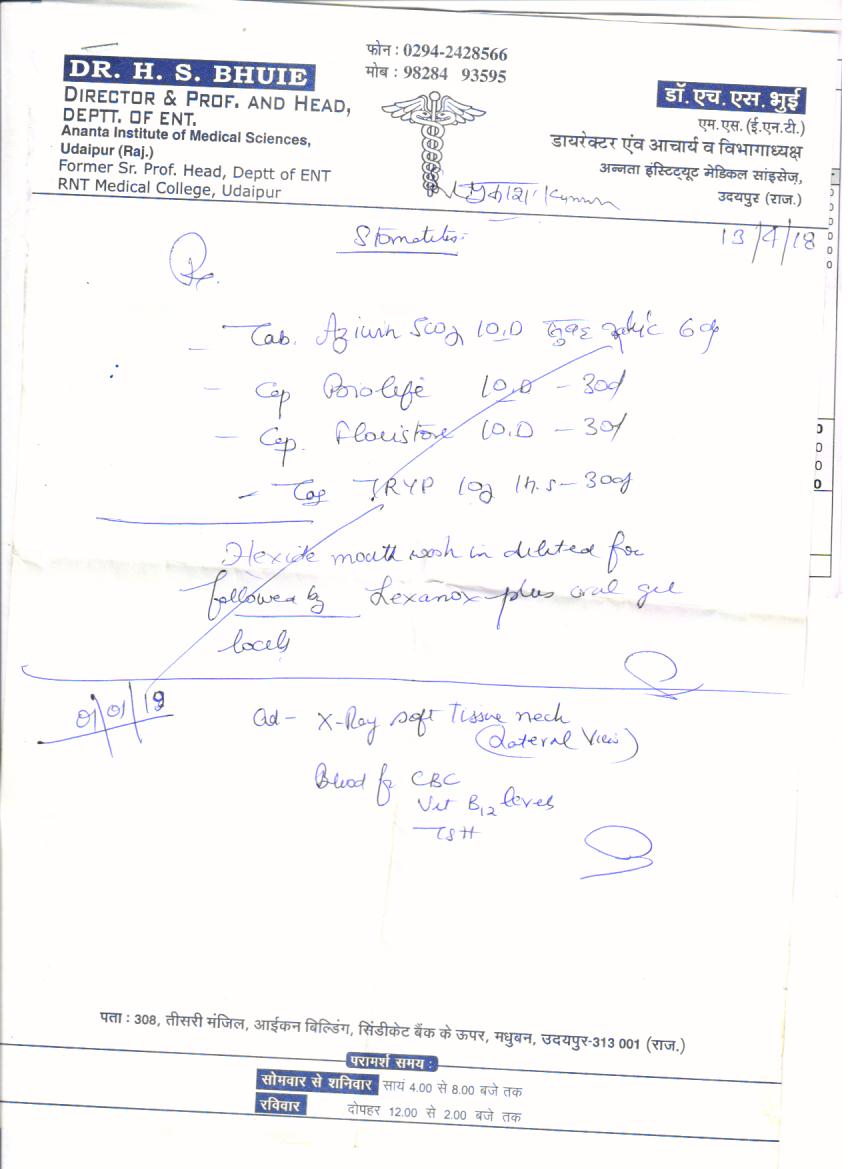 फोन : 0294-2428566
मोब : 98284 93595
DR. H. S. BHUIE
DIRECTOR & PROF. AND HEAD,
DEPTT. OF ENT.
Ananta Institute of Medical Sciences,
Udaipur (Raj.)
Former Sr. Prof. Head, Deptt of ENT
RNT Medical College, Udaipur
डॉ. एच. एस. भुई
एम. एस. (ई.एन.टी.)
डायरेक्टर एंव आचार्य व विभागाध्यक्ष
अन्नता इंस्टिट्यूट मेडिकल सांइसेज़,
उदयपुर (राज.)
13/4/18
Rx
Tab. 10.D
- Cap 10.D - 30d
- Cap. 10.D - 30d
- TRYP 10g 1h.s - 30d
mouth wash in diluted for
followed by Lexanox plus oral gel
01/01/19
Ad - X-Ray soft Tissue neck
(Lateral View)
Blood for CBC
Vit B12 levels
TSH
पता : 308, तीसरी मंजिल, आईकन बिल्डिंग, सिंडीकेट बैंक के ऊपर, मधुबन, उदयपुर-313 001 (राज.)
परामर्श समय :
सोमवार से शनिवार सायं 4.00 से 8.00 बजे तक
रविवार दोपहर 12.00 से 2.00 बजे तक